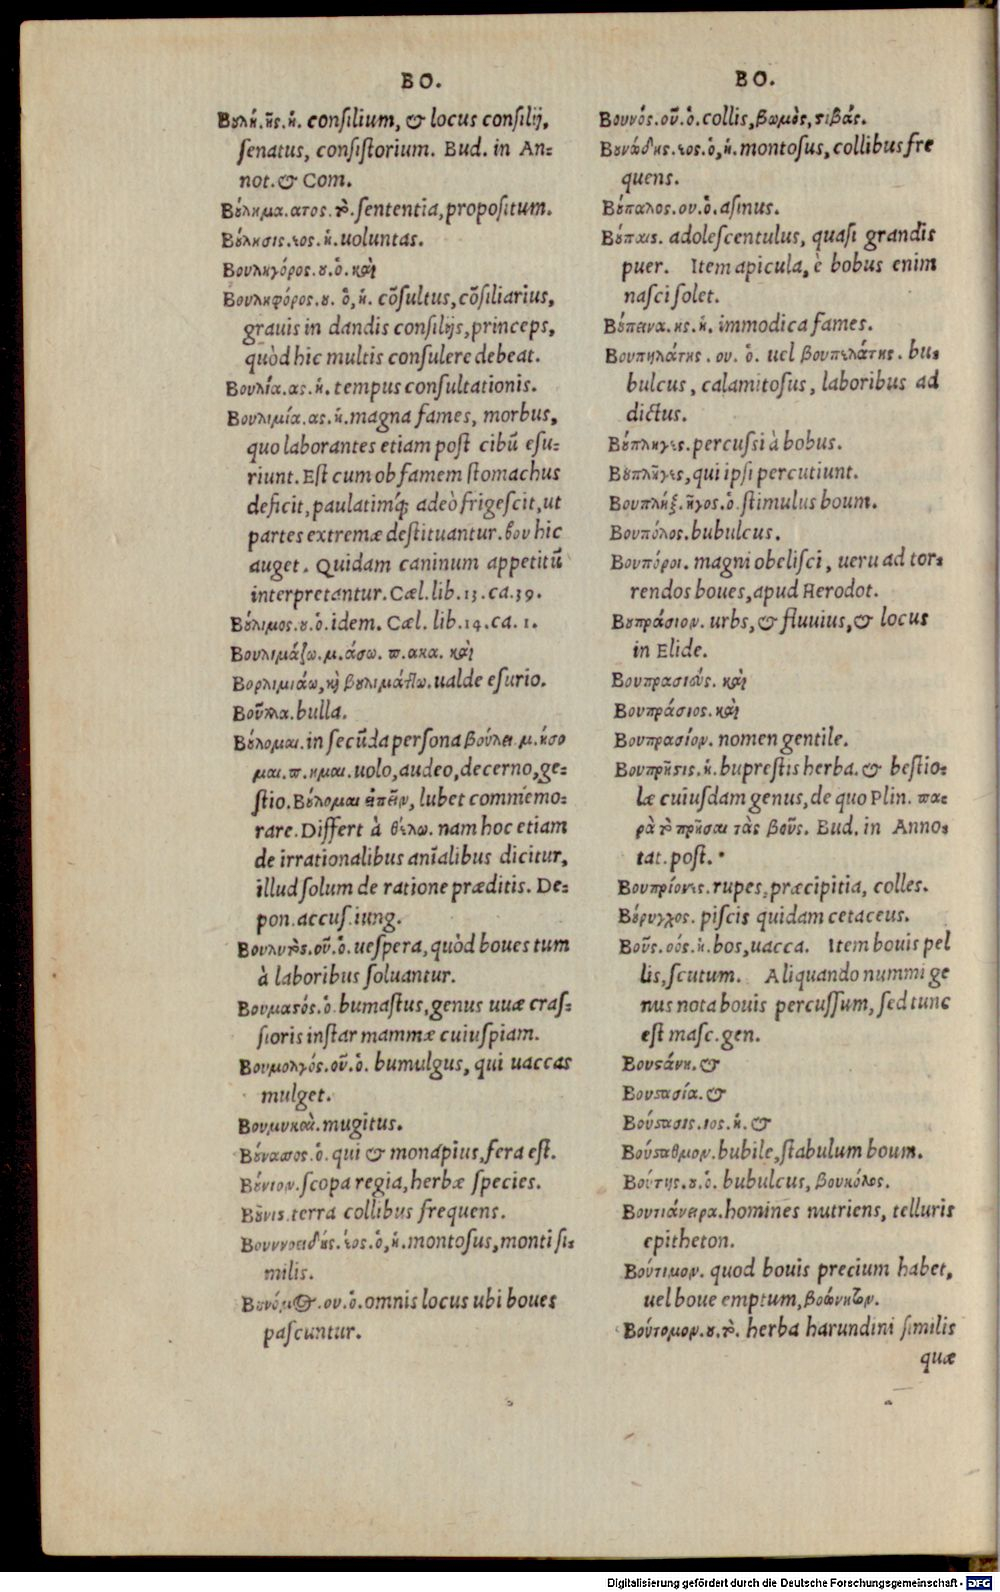 BO.
Βουλή.ῆς.ἡ. consilium, & locus consilij,
senatus, consistorium. Bud. in An=
not. & Com.
Βούλημα.ατος.τὸ. sententia, propositum.
Βούλησις.εος.ἡ. uoluntas.
Βουληγόρος.ου.ὁ. καὶ
Βουληφόρος.ου. ὁ, ἡ. cōsultus, cōsiliarius,
grauis in dandis consilijs, princeps,
quòd hic multis consulere debeat.
Βουλία.ας.ἡ. tempus consultationis.
Βουλιμία.ας.ἡ. magna fames, morbus,
quo laborantes etiam post cibū esu=
riunt. Est cum ob famem stomachus
deficit, paulatimq́; adeò frigescit, ut
partes extremæ destituantur. βου hic
auget. Quidam caninum appetitū
interpretantur. Cæl. lib. 13. ca. 39.
Βούλιμος.ου.ὁ. idem. Cæl. lib. 14. ca. 1.
Βουλιμάζω.μ.άσω. π.ακα. καὶ
Βορλιμιάω, καὶ βουλιμάττω. ualde esurio.
Βοῦλλα. bulla.
Βούλομαι. in secūda persona βούλει. μ. ήσο
μαι. π. ημαι. uolo, audeo, decerno, ge=
stio. Βούλομαι εἰπεῖν, lubet commemo=
rare. Differt à θέλω. nam hoc etiam
de irrationalibus anīalibus dicitur,
illud solum de ratione præditis. De=
pon. accus. iung.
Βουλυτὸς.οῦ.ὁ. uespera, quòd boues tum
à laboribus soluantur.
Βουμαστός.ὁ. bumastus, genus uuæ cras=
sioris instar mammæ cuiuspiam.
Βουμολγός.οῦ.ὁ. bumulgus, qui uaccas
mulget.
Βουμυκαὶ. mugitus.
Βούνασος.ὁ. qui & monapius, fera est.
Βούνιον. scopa regia, herbæ species.
Βοῦνις. terra collibus frequens.
Βουννοειδὴς.έος.ὁ, ἡ. montosus, monti si=
milis.
Βουνόμος.ου.ὁ. omnis locus ubi boues
pascuntur.
BO.
Βουνός.οῦ.ὁ. collis, βωμὸς, στιβάς.
Βουνώδης.εος.ὁ, ἡ. montosus, collibus fre
quens.
Βούπαλος.ου.ὁ. asinus.
Βούπαις. adolescentulus, quasi grandis
puer. Item apicula, è bobus enim
nasci solet.
Βούπεινα.ης.ἡ. immodica fames.
Βουπηλάτης. ου. ὁ. uel βουπελάτης. bu=
bulcus, calamitosus, laboribus ad
dictus.
Βούπληγες. percussi à bobus.
Βουπλῆγες, qui ipsi percutiunt.
Βουπλήξ.ῆγος.ὁ. stimulus boum.
Βουπόλος. bubulcus.
Βουπόροι. magni obelisci, ueru ad tor=
rendos boues, apud Herodot.
Βουπράσιον. urbs, & fluuius, & locus
in Elide.
Βουπρασιεύς. καὶ
Βουπράσιος. καὶ
Βουπρασίον. nomen gentile.
Βουπρῆστις.ἡ. buprestis herba. & bestio=
læ cuiusdam genus, de quo Plin. πα=
ρὰ τὸ πρῆσαι τὰς βοῦς. Bud. in Anno=
tat. post.
Βουπρίονες. rupes, præcipitia, colles.
Βούρυγχος. piscis quidam cetaceus.
Βοῦς.οός.ἡ. bos, uacca. Item bouis pel
lis, scutum. Aliquando nummi ge
nus nota bouis percussum, sed tunc
est masc. gen.
Βουστάνη. &
Βουστασία. &
Βούστασις.ιος.ἡ. &
Βούσταθμον. bubile, stabulum boum.
Βούτης.ου.ὁ. bubulcus, βουκόλος.
Βουτιάνειρα. homines nutriens, telluris
epitheton.
Βούτιμον. quod bouis precium habet,
uel boue emptum, βοώνητον.
Βούτομον.ου.τὸ. herba harundini similis
quæ
Digitalisierung gefördert durch die Deutsche Forschungsgemeinschaft - DFG